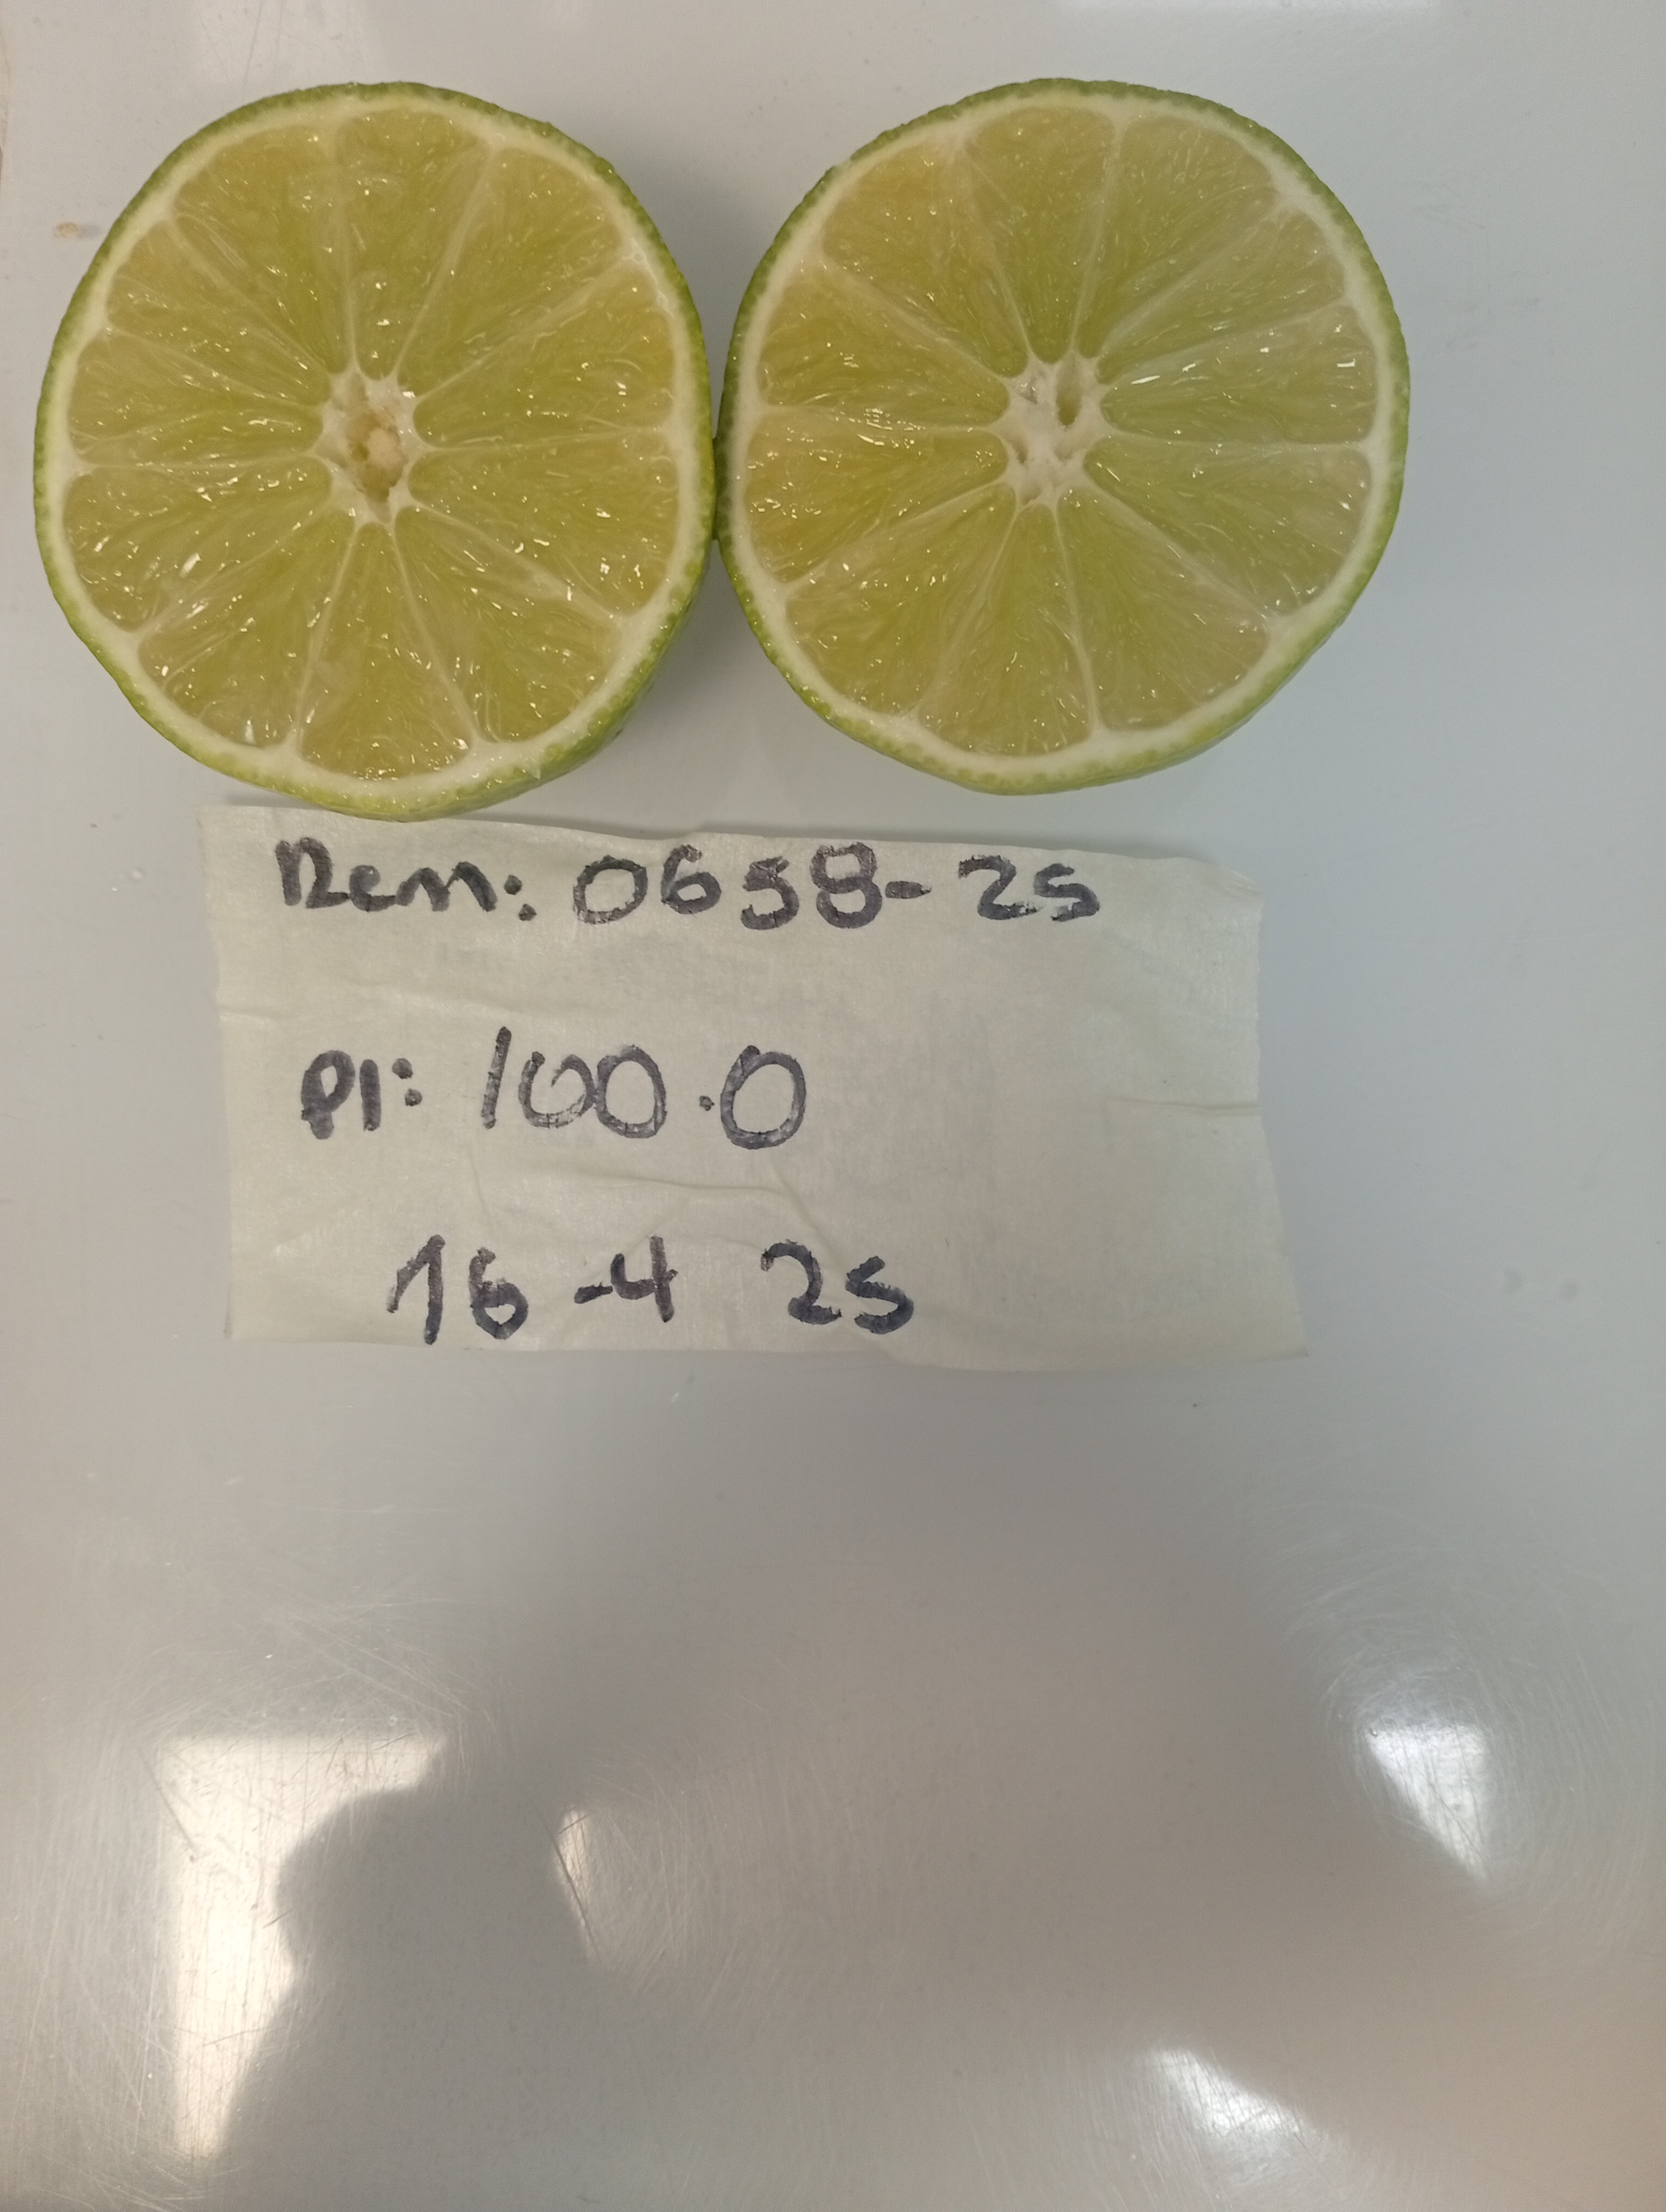 Rem: 0658-25
PI: 100.0
16-4 25